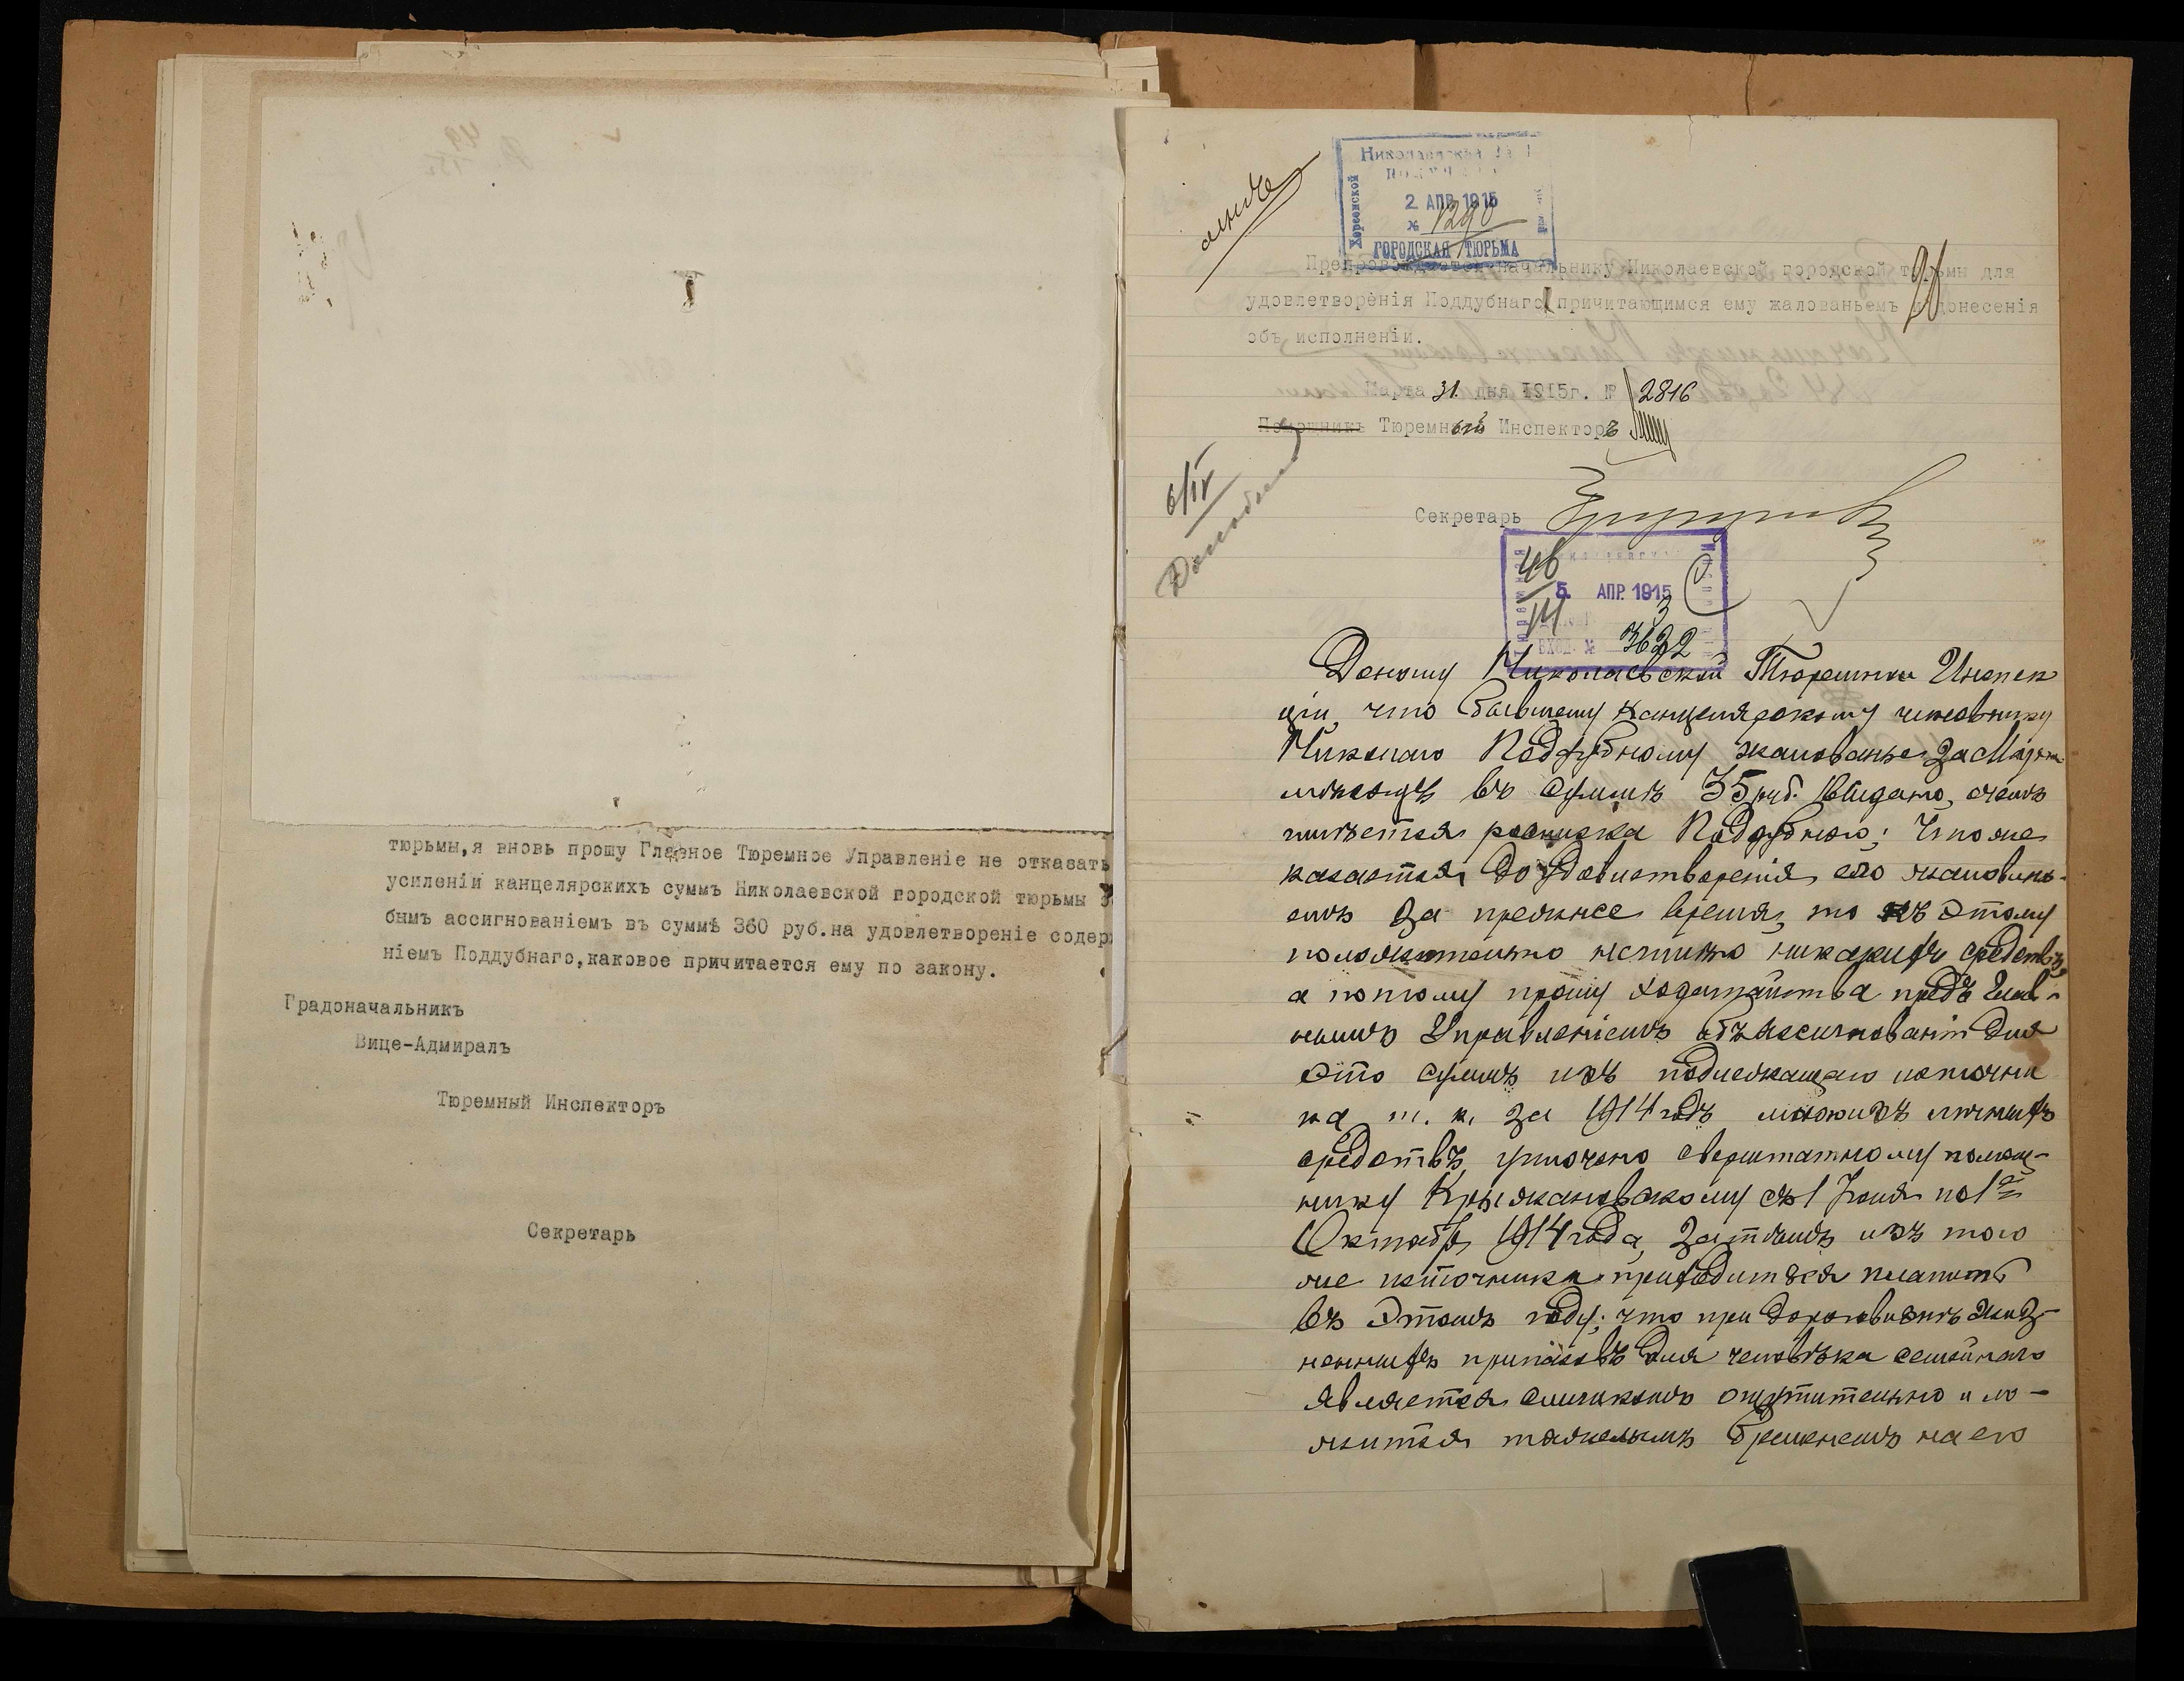 тюрьмы,я вновь прошу Главное Тюремное Управленіе не отказать
усиленіи канцелярскихъ суммъ Николаевской городской тюрьмы
бымъ ассигнованіемъ въ суммѣ 360 руб.на удовлетвореніе содер
ніемъ Поддубнаго,каковое причитается ему по закону.
Градоначальникъ
Вице-Адмиралъ
Тюремный Инспекторъ
Секретарь
Херсонской
2 АПР 1915
№ 1290
ГОРОДСКАЯ ТЮРЬМА
Препровождается начальнику Николаевской городской тюрьмы для
удовлетворенія Поддубнаго причитающимся ему жалованьемъ и донесенія
объ исполненіи.
Марта 31 дня 1915г. № 2816
Помощникъ Тюремный Инспекторъ
6/IV
Секретарь
5. АПР. 1915
ВХОД. № 3622
Доношу Николаевской Тюремной Инспек
ціи, что бывшему канцелярскому чиновнику
Николаю Поддубному жалованье за Мартъ
мѣсяцъ въ суммѣ 35 руб. выдано, о чемъ
имѣется росписка Поддубнаго; Что же
касается до удовлетворенія его жаловань-
емъ за прежнее время, то къ этому
положительно нѣтъ никакихъ средствъ,
а потому прошу ходатайства предъ Глав-
нымъ Управленіемъ объ ассигнованіи для
этого суммъ изъ подлежащаго источни
ка, т. к. за 1914 годъ мною изъ личныхъ
средствъ уплочено сверхштатному помощ-
нику Крыжановскому съ 1 Іюня по 1ое
Октября 1914 года, затѣмъ изъ того
же источника приходится платить
въ этомъ году; что при дороговизнѣ жиз-
ненныхъ припасовъ для человѣка семейнаго
является слишкомъ ощутительно и ло-
жится тяжелымъ бременемъ на его